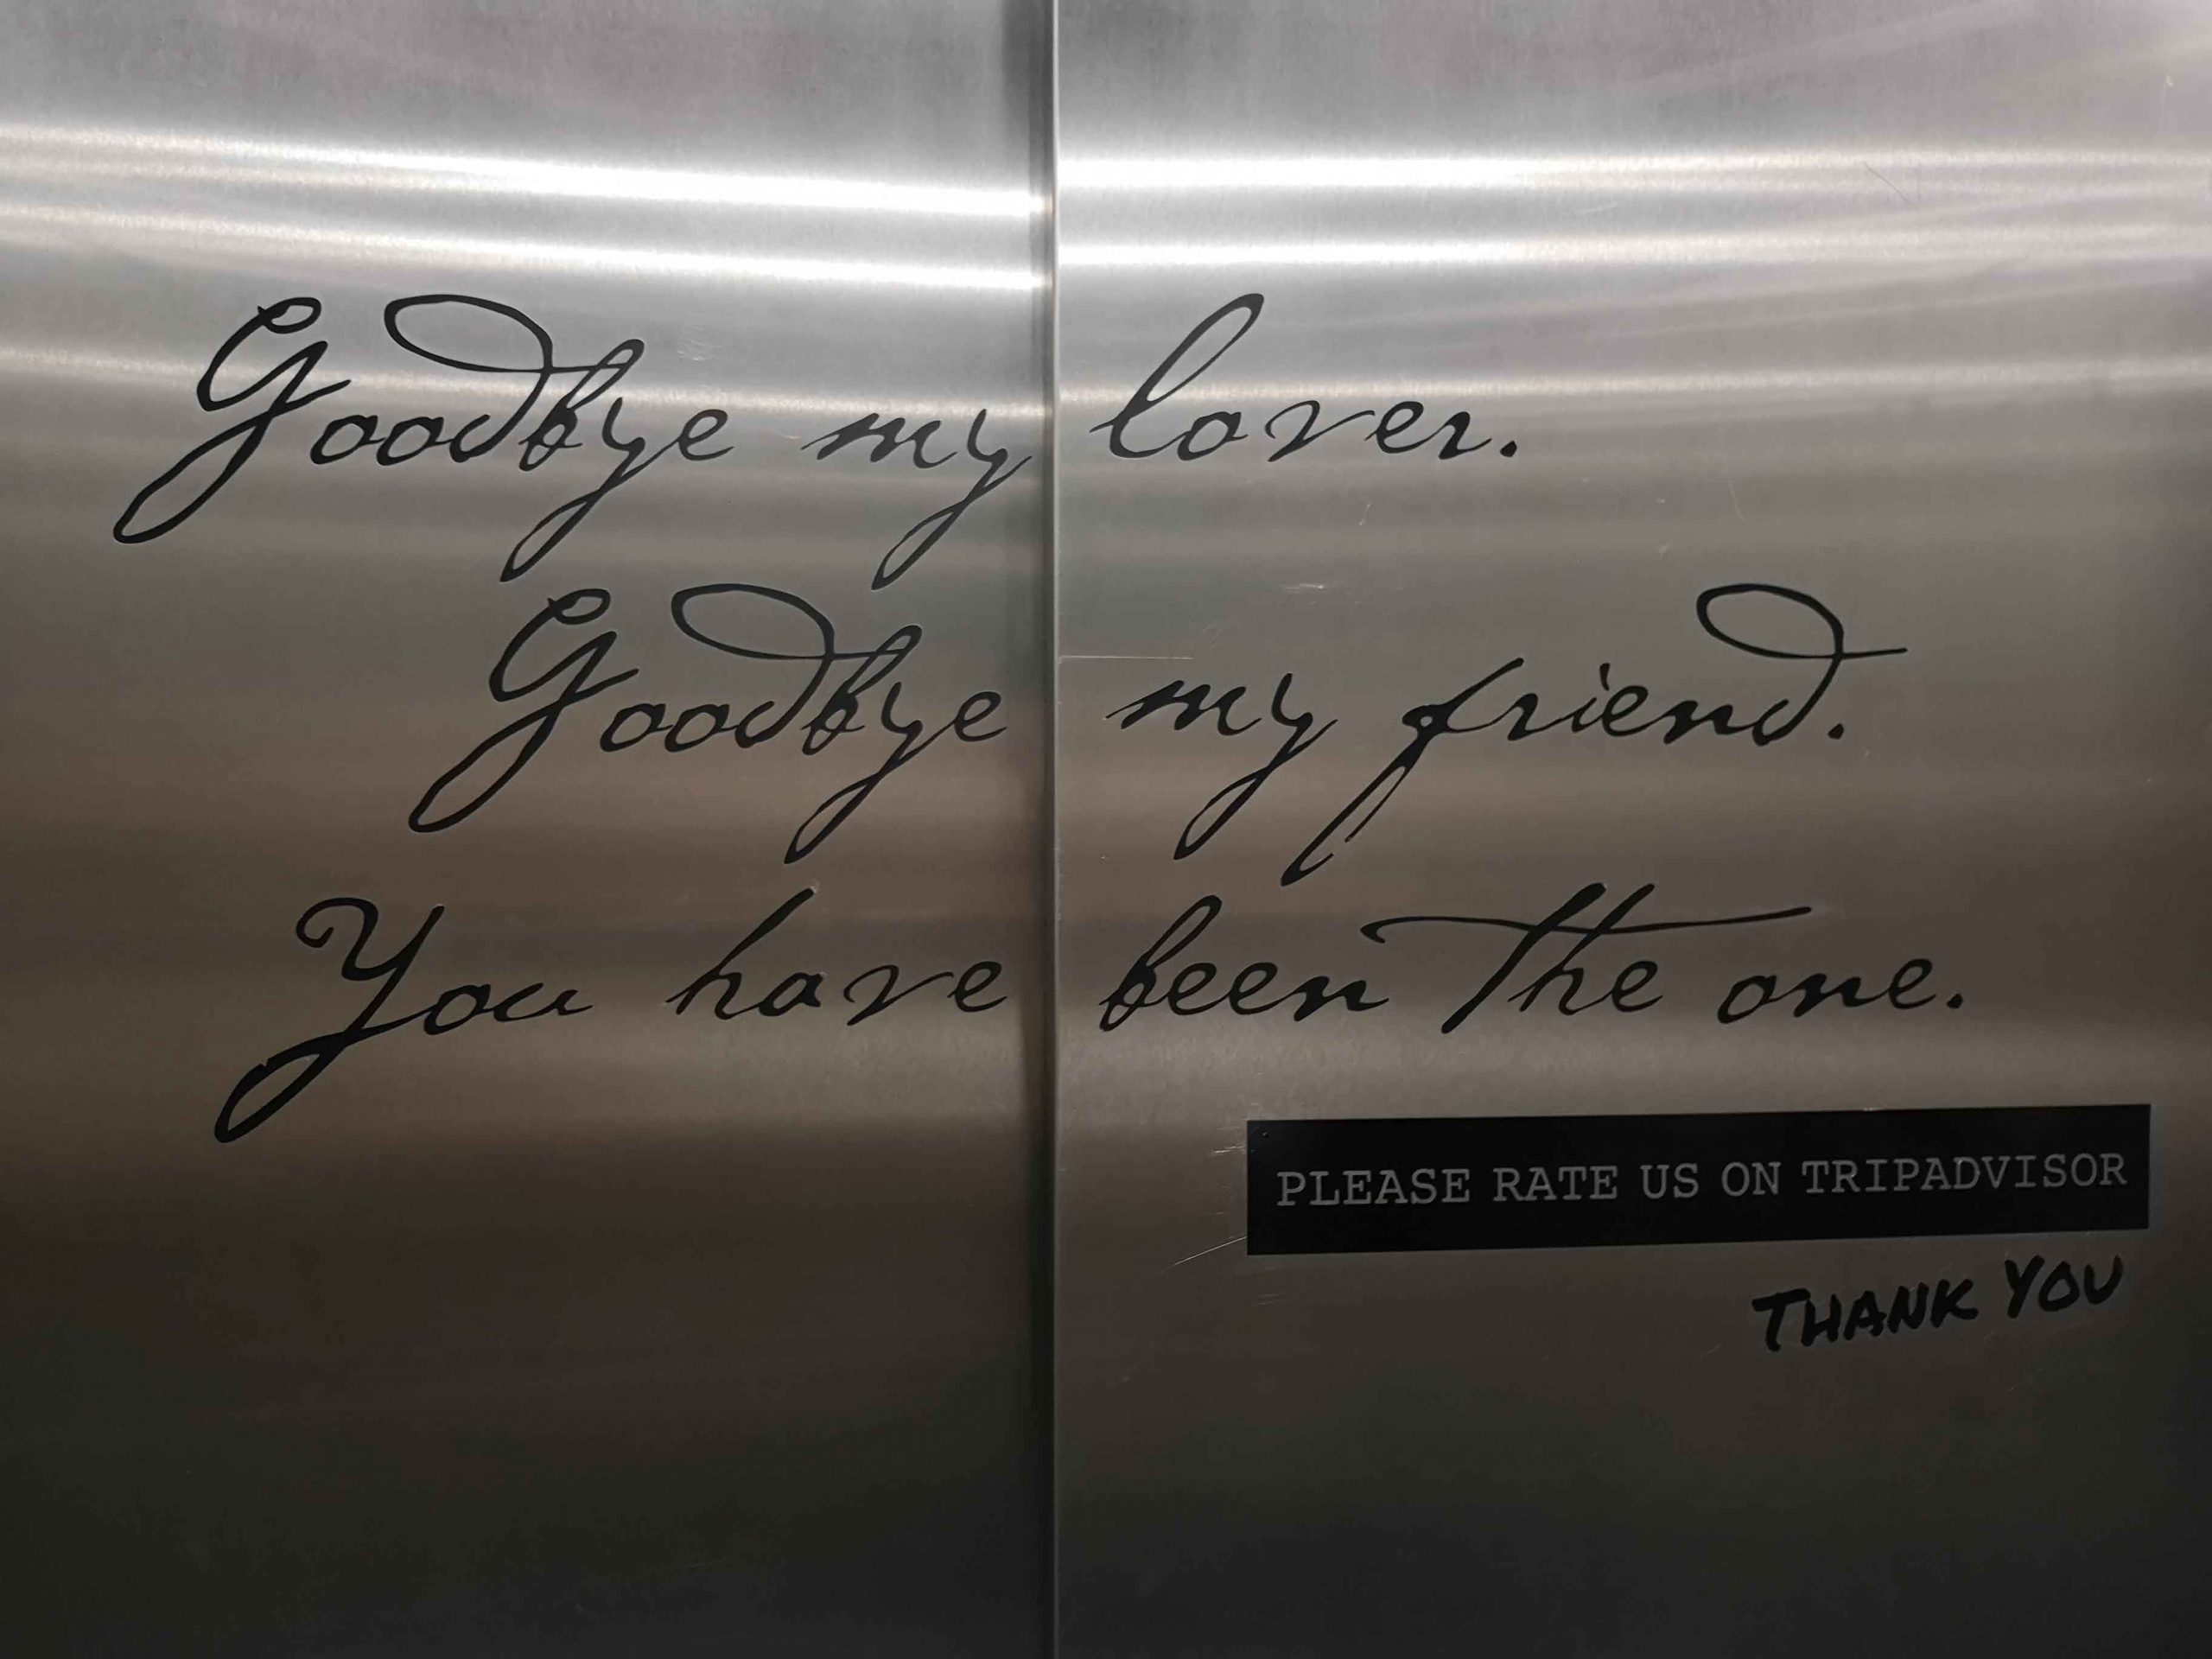 Goodbye my lover.
Goodbye my friend.
You have been the one.
PLEASE RATE US ON TRIPADVISOR
THANK YOU